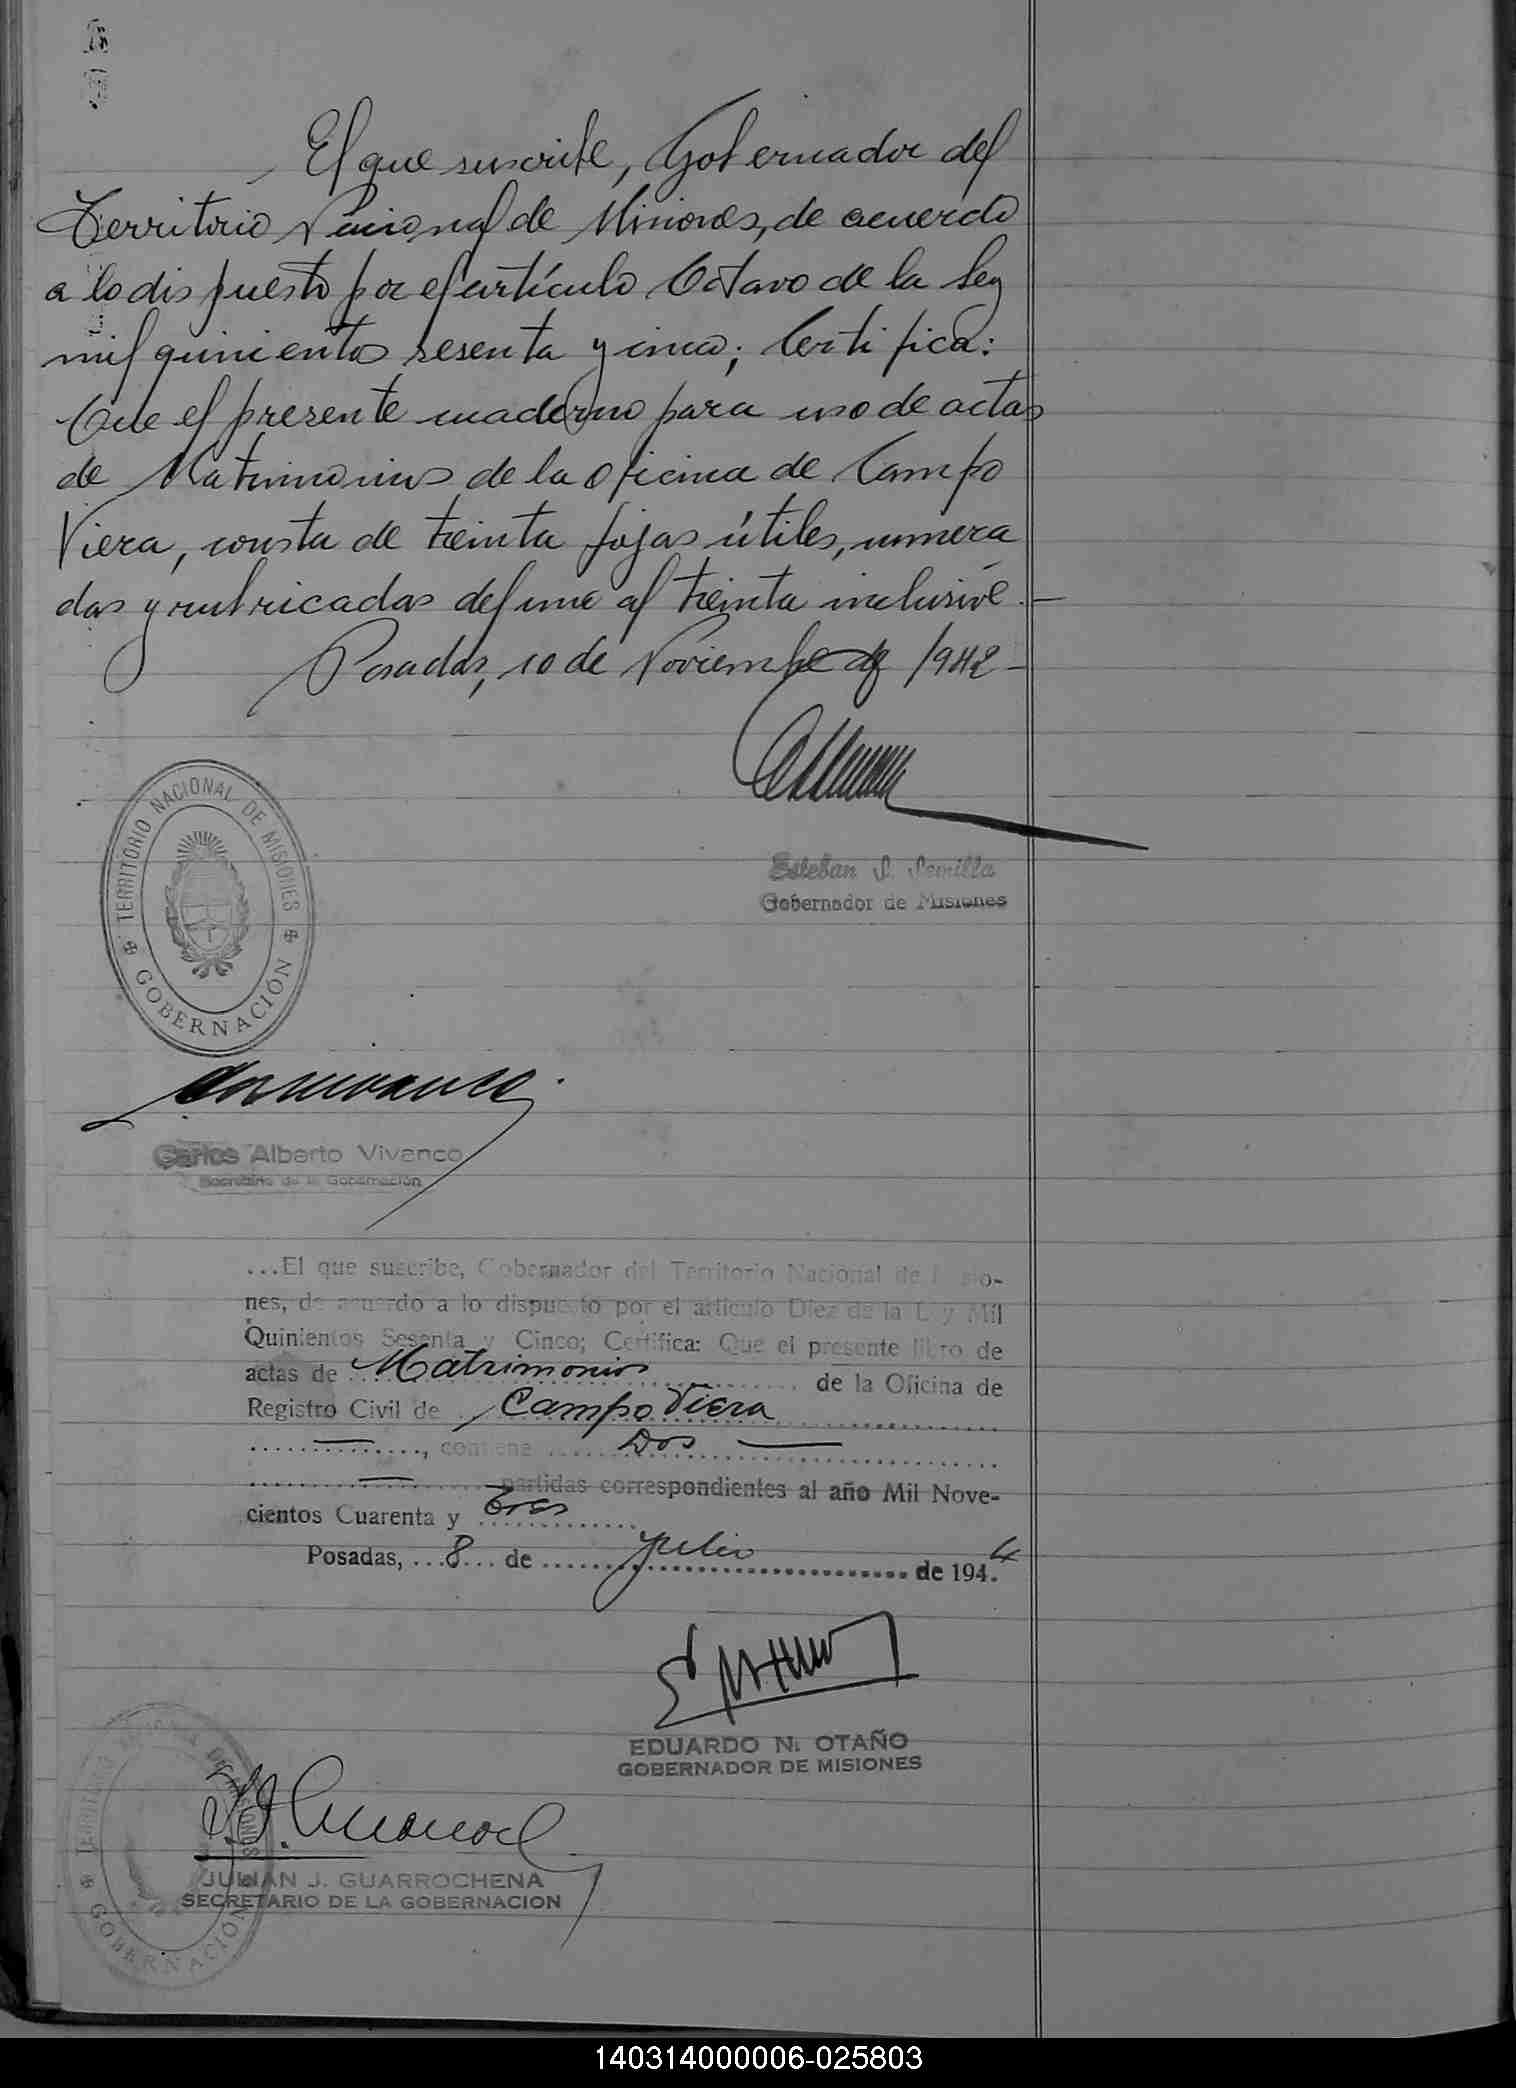 El que suscribe, Gobernador del
Territorio Nacional de Misiones, de acuerdo
a lo dispuesto por el artículo Octavo de la Ley
mil quinientos sesenta y cinco; Certifica:
Que el presente cuaderno para uso de actas
de Matrimonios de la oficina de Campo
Viera, consta de treinta fojas útiles, numera
das y rubricadas del uno al treinta inclusive.—
Posadas, 10 de Noviembre de 1942-
TERRITORIO NACIONAL DE MISIONES
GOBERNACIÓN
Esteban S. Semilla
Gobernador de Misiones
Carlos Alberto Vivanco
Secretario de la Gobernación
...El que suscribe, Gobernador del Territorio Nacional de Misio-
nes, de acuerdo a lo dispuesto por el artículo Diez de la Ley Mil
Quinientos Sesenta y Cinco; Certifica: Que el presente libro de
actas de Matrimonios de la Oficina de
Registro Civil de Campo Viera
— , contiene Dos —
— partidas correspondientes al año Mil Nove-
cientos Cuarenta y Tres
Posadas, 8 de julio de 1944
EDUARDO N. OTAÑO
GOBERNADOR DE MISIONES
TERRITORIO NACIONAL DE MISIONES
GOBERNACIÓN
JULIAN J. GUARROCHENA
SECRETARIO DE LA GOBERNACION
140314000006-025803